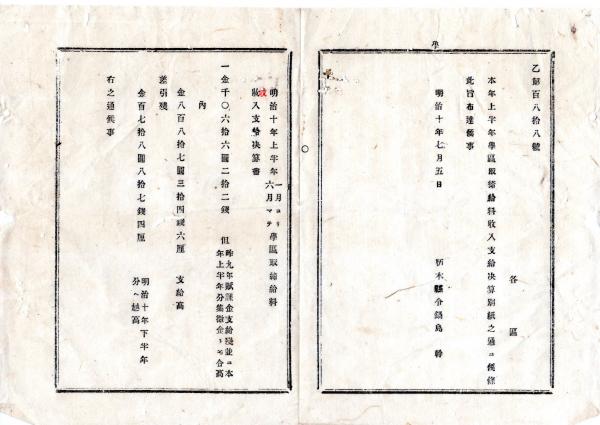 乙第百八拾八號
各區
本年上半年學區取締給料收入支給决算別紙之通ニ候條
此旨布達候事
明治十年七月五日
栃木縣令鍋島幹
明治十年上半年
一月ヨリ
六月マテ
學區取締給料
收入支給决算書
一金千〇六拾六圓二拾二錢
但昨九年賦課金支給殘並ニ本
年上半年分集徵金トモ合高
內
金八百八拾七圓三拾四錢六厘
支給高
差引殘
金百七拾八圓八拾七錢四厘
明治十年下半年
分ヘ越高
右之通候事